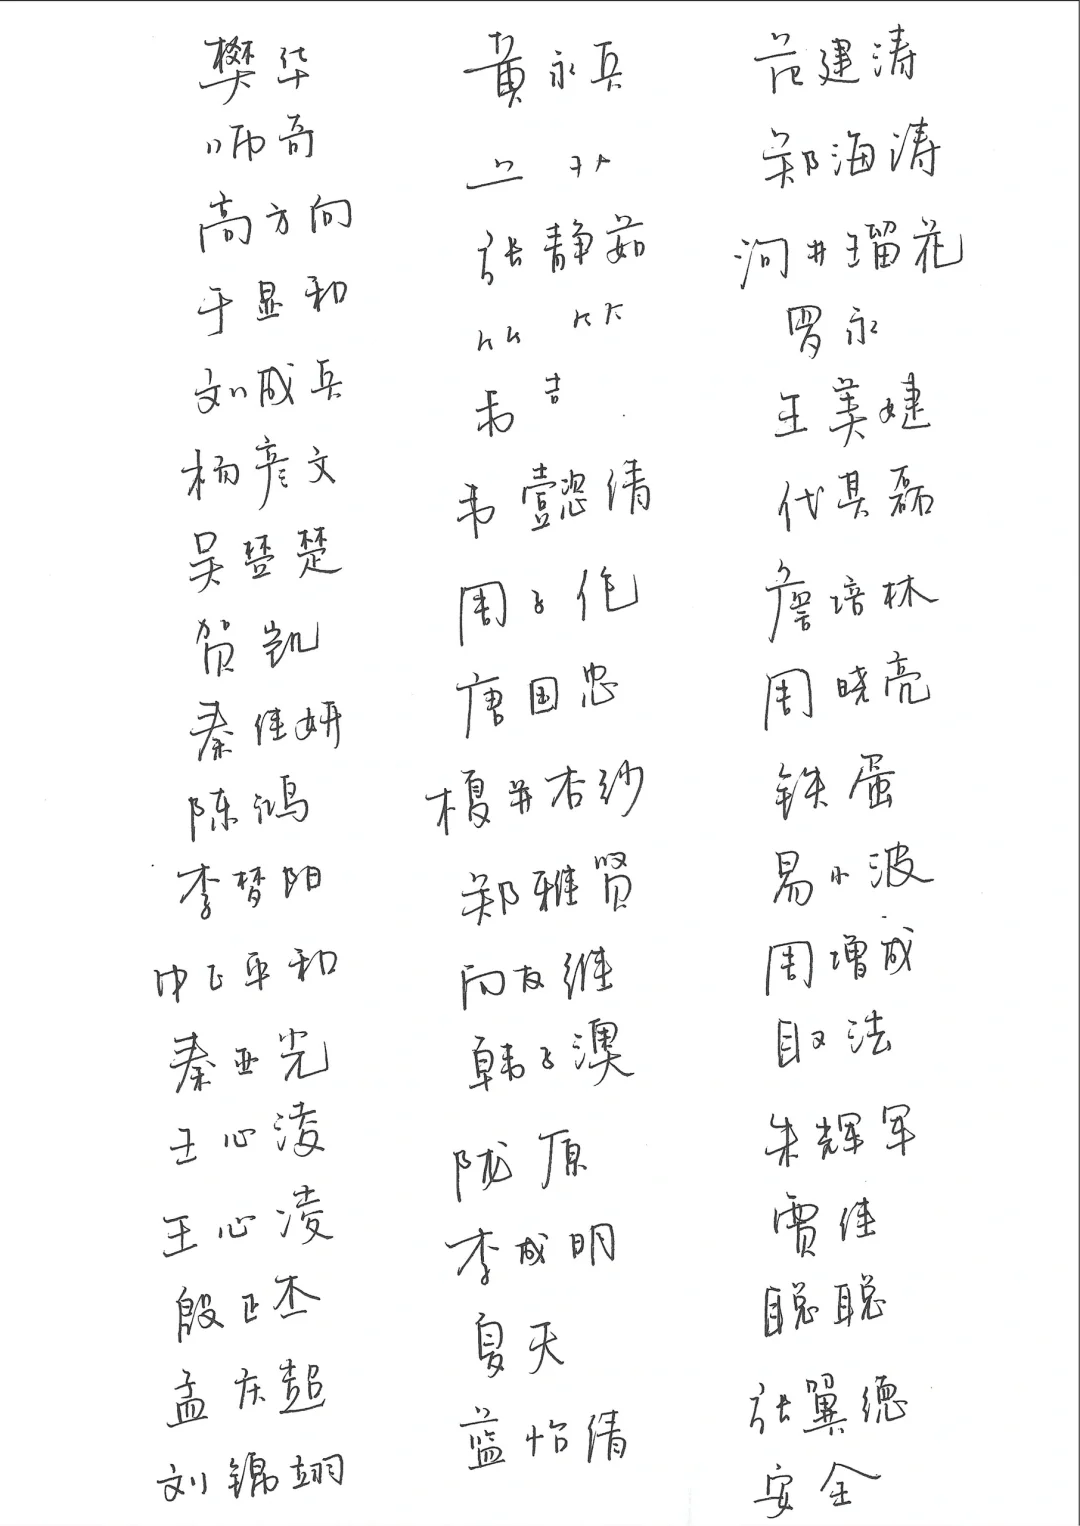 樊华
师奇
高方向
于显和
刘成兵
杨彦文
吴楚楚
贺凯
秦佳妍
陈鸿
李梦阳
中正平和
秦亚光
王心凌
王心凌
殷正杰
孟庆超
刘锦翊
黄永兵
张静茹
韦吉
韦懿倩
周子作
唐国忠
榎井杏纱
郑雅贤
向友维
韩子澳
陇原
李成明
夏天
蓝怡倩
范建涛
郑海涛
泂井瑠花
罗永
王美婕
代其磊
詹培林
周晓亮
铁蛋
易小波
周增成
取法
朱辉军
贾佳
聪聪
张翼德
安全